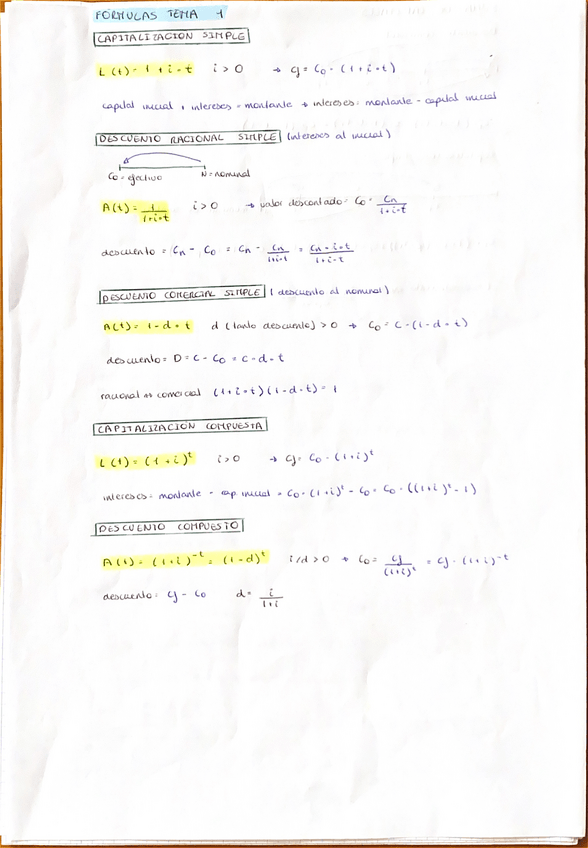 FORMULAS TEMA 1
CAPITALIZACION SIMPLE
L(t) = 1 + i · t    i > 0    → Cj = C0 · (1 + i · t)
capital inicial + intereses = montante → intereses = montante - capital inicial
DESCUENTO RACIONAL SIMPLE (intereses al inicial)
C0 = efectivo    N = nominal
A(t) = 1/(1+i·t)    i > 0    → valor descontado = C0 = Cn/(1+i·t)
descuento = Cn - C0 = Cn - Cn/(1+i·t) = Cn·i·t/(1+i·t)
DESCUENTO COMERCIAL SIMPLE (descuento al nominal)
A(t) = 1 - d · t    d (tanto descuento) > 0 → C0 = C · (1 - d · t)
descuento = D = C - C0 = C · d · t
racional ↔ comercial (1 + i · t) (1 - d · t) = 1
CAPITALIZACION COMPUESTA
L(t) = (1 + i)^t    i > 0    → Cj = C0 · (1 + i)^t
intereses = montante - cap inicial = C0 · (1 + i)^t - C0 = C0 · ((1 + i)^t - 1)
DESCUENTO COMPUESTO
A(t) = (1 + i)^-t = (1 - d)^t    i/d > 0 → C0 = Cj/(1+i)^t = Cj · (1 + i)^-t
descuento = Cj - C0    d = i/(1+i)